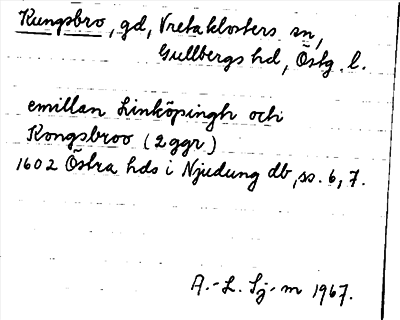 Kungsbro, gd, Vreta klosters sn,
Gullbergs hd, Östg. l.
emillan Linköpingh och
Kongsbroo (2 ggr)
1602 Östra hds i Njudung db, ss. 6, 7.
A.-L. Sj-m 1967.